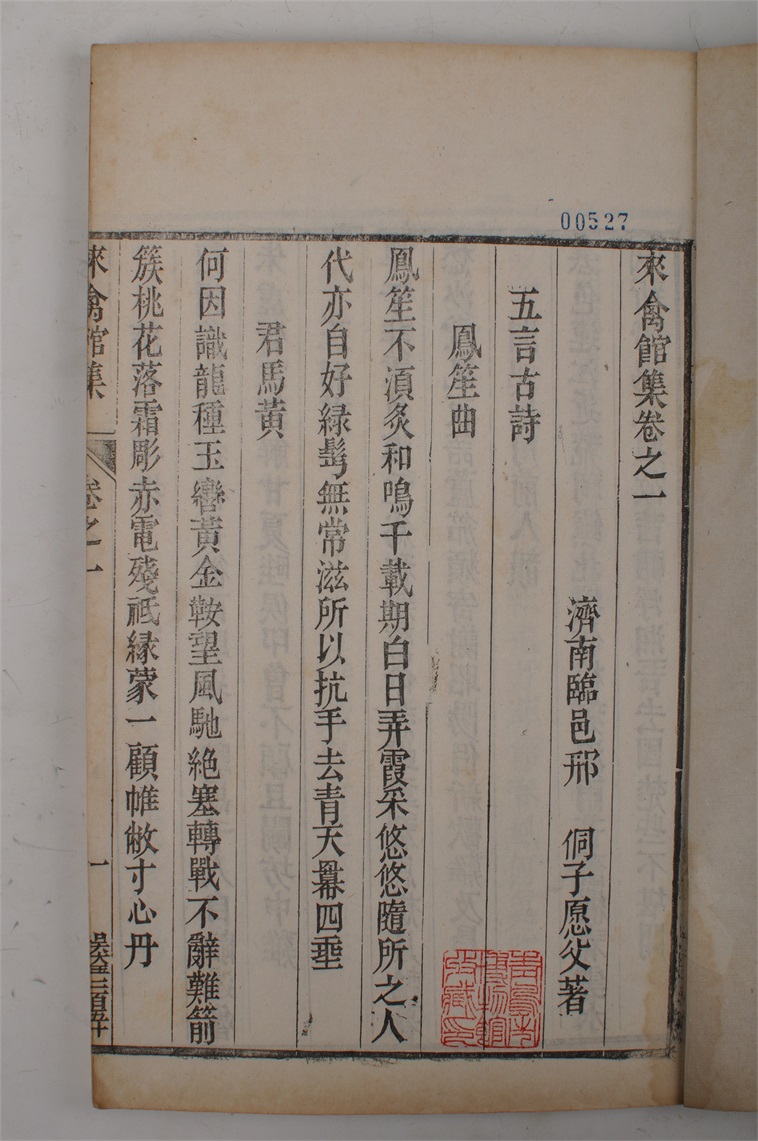 00527
來禽館集卷之一
濟南臨邑邢 侗子愿父著
五言古詩
鳳笙曲
鳳笙不湏灸和鳴千載期白日弄霞采悠悠隨所之人
代亦自好緑髩無常滋所以抗手去青天羃四垂
君馬黃
何因識龍種玉轡黃金鞍望風馳絶塞轉戰不辭難箭
簇桃花落霜彫赤電殘祗緣蒙一顧帷敝寸心丹
來禽館集
卷之一
一